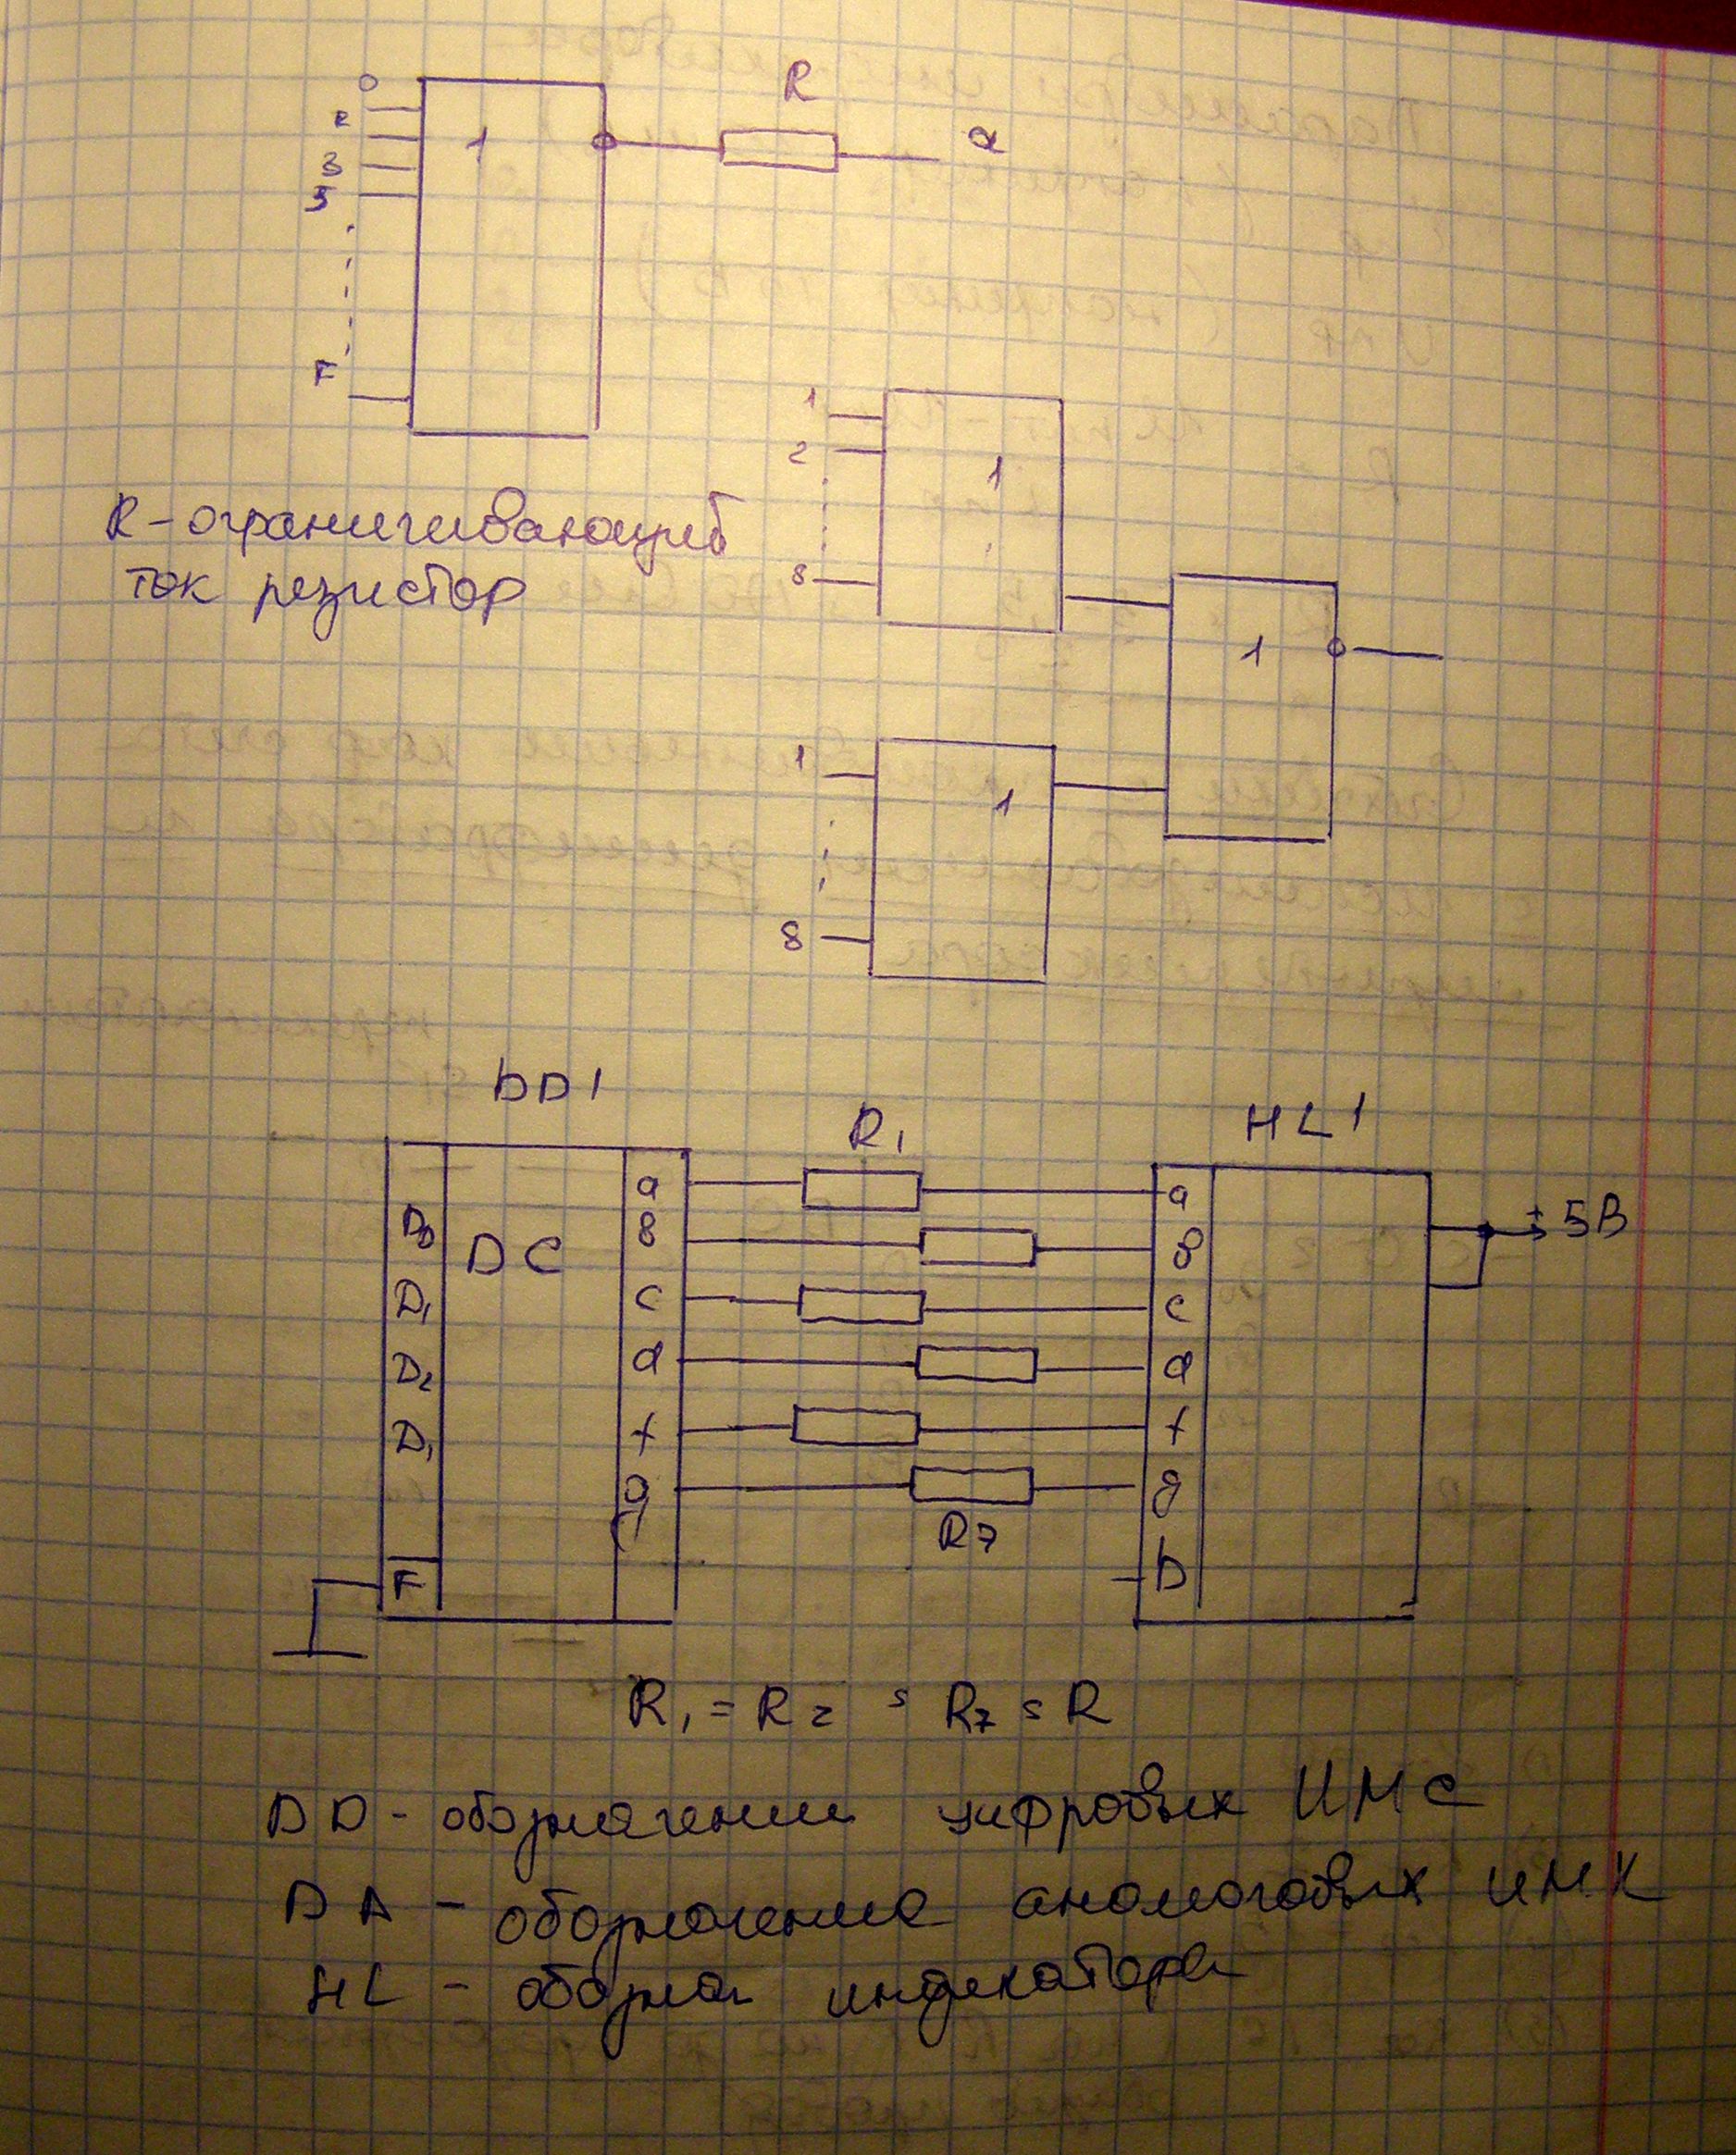 R
0
2
3
5
F
1
a
R - ограничивающий
ток резистор
1
2
8
1
1
8
1
1
DD1
R1
HL1
D0
D1
D2
D1
F
DC
a
b
c
d
f
g
R7
a
b
c
d
f
g
h
+5В
R1 = R2 = R7 = R
DD - обозначении цифровых ИМС
DA - обозначение аналоговых ИМХ
HL - обознач индекатора